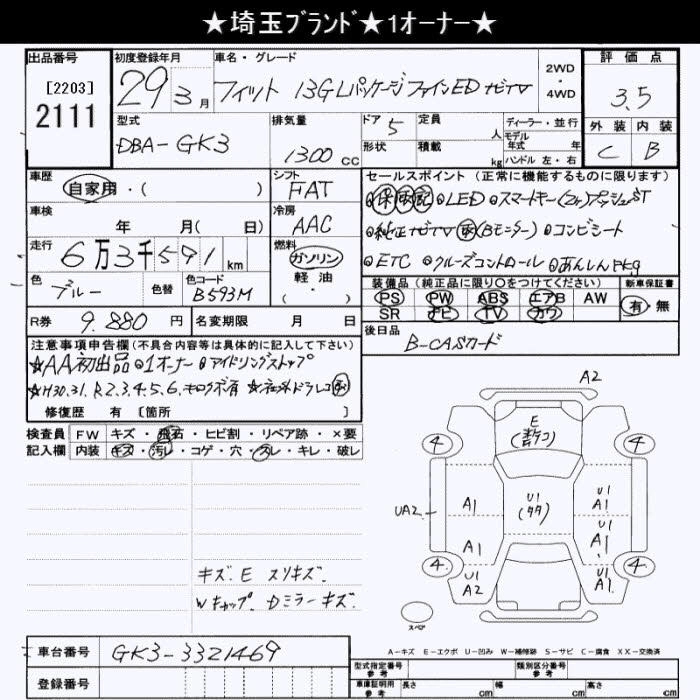 ★埼玉ブランド★1オーナー★
出品番号 初度登録年月 車名・グレード 2WD・4WD 評価点
[2203]
2111
29年3月 フィット 13GLパッケージファインED ナビTV 3.5
型式 排気量 ドア 定員 ディーラー・並行 外装 内装
DBA-GK3 1300cc 5 人 モデル年式 年 C B
形状 積載 kg ハンドル 左・右
車歴 シフト セールスポイント (正常に機能するものに限ります)
自家用・( ) FAT 保 取 記 LED スマートキー(2ヶ)プッシュST
車検 冷房
年 月(日) AAC 純正ナビTV (Bモニター) コンビシート
走行 燃料
6万3千591km ガソリン 軽油・( ) ETC クルーズコントロール あんしんPkg
色 色替 色コード 装備品 (純正品に限り〇をつけてください) 新車保証書
ブルー B593M PS PW ABS エアB AW 有 無
SR ナビ TV カワ
R券 9.880円 名変期限 月 日 後日品
B-CASカード
注意事項申告欄(不具合内容等は具体的に記入して下さい)
★AA初出品 1オーナー アイドリングストップ
★H30.31.R2.3.4.5.6.キロクボ有 ドラレコ
修復歴 有 [箇所
検査員記入欄 FW キズ・飛石・ヒビ割・リペア跡・×要
内装 キズ・汚レ・コゲ・穴・スレ・キレ・破レ
A2
E
4 4
U1
A1 A1
UA2
A1 A1
4 4
U1 A2 U1 A1
スペア
キズ.E スリキズ.
Wキャップ.Dミラーキズ.
A-キズ E-エクボ U-凹み W-補修跡 S-サビ C-腐食 XX-交換済
車台番号 GK3-3321469
登録番号
型式指定番号 参考 類別区分番号 参考
車庫証明用 参考 長さ cm 幅 cm 高さ cm